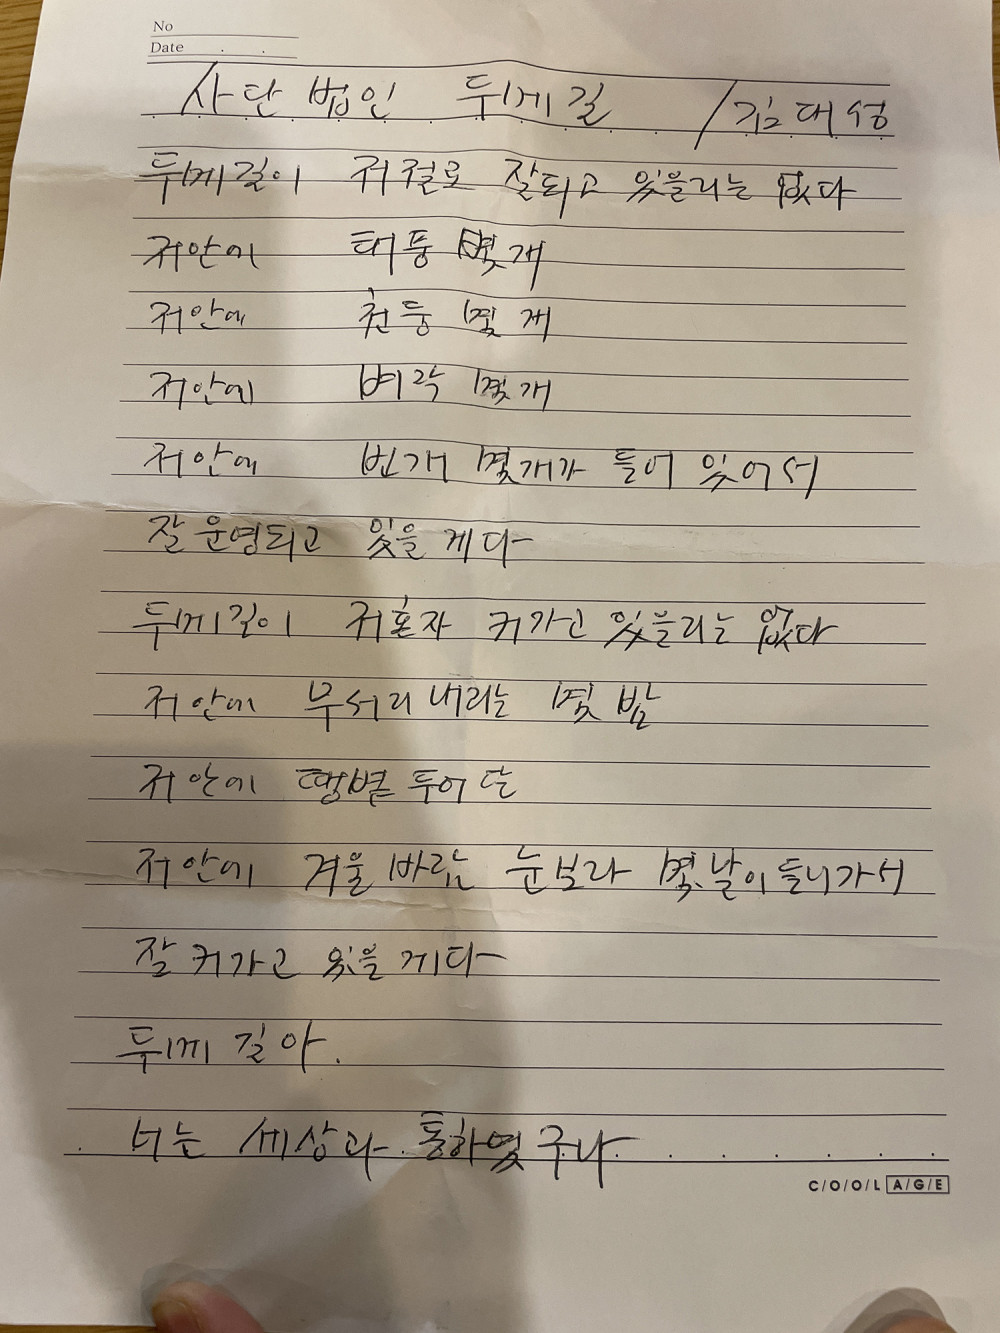 No
Date . .
/사단법인 두께길 /김대성
두께길이 저절로 잘되고 있을리는 없다
저안에 태풍 몇개
저안에 천둥 몇개
저안에 벼락 몇개
저안에 번개 몇개가 들어 있어서
잘 운영되고 있을 게다
두께길이 저혼자 커가고 있을리는 없다
저안에 무서리 내리는 몇 밤
저안에 땡볕 두어 달
저안에 겨울 바람 눈보라 몇날이 들니가서
잘 커가고 있을 게다
두께 길아.
너는 세상과 통하였구나
C/O/O/L A/G/E